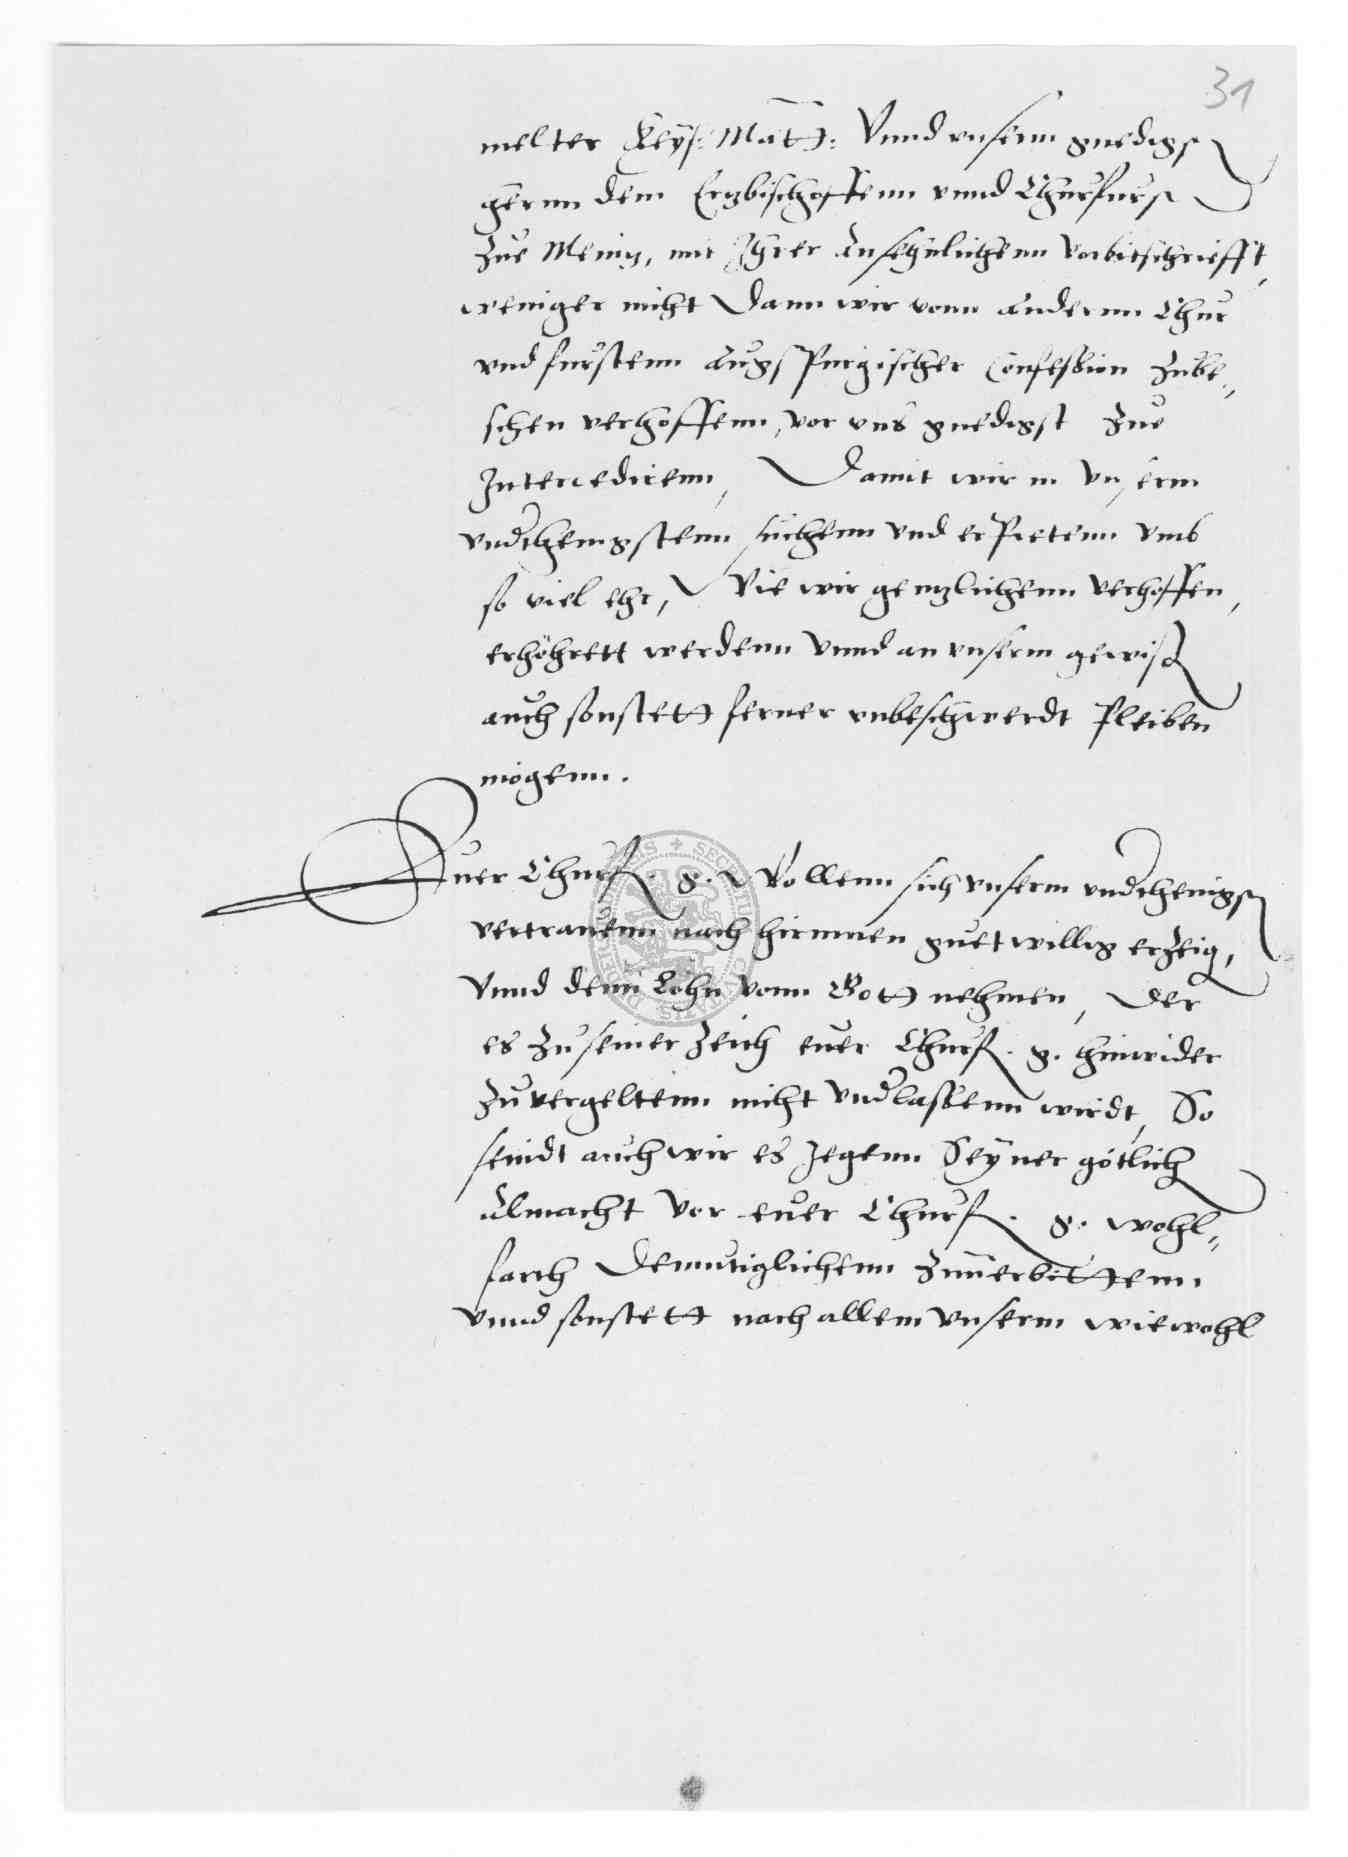 31
melter Keys: Matt: Vnnd vnserm gnedigs
herrnn dem Ertzbischoffenn vnnd Churfurs
Zue Meintz, mit Ihrer ansehnlichenn Vorbitschriefft,
weniger nicht Dann wir vonn andernn Chur
vnd furstenn Augspurgischer Confession Zube„
schen verhoffenn, vor vns gnedigst Zue
Intercedirenn, Damit wir in vnserm
vnderthenigstenn suchenn vnd erPietenn vmb
so viel ehr, Wie wir gentzlichenn verhoffen,
erhöhrett werdenn Vnnd an vnserm gewiss
auch sonstett ferner vnbeschwerdt Pleiben
mögenn.
Euer Churf. g. Wollenn sich vnserm vnderthenigs
vertrauenn nach hirinnen guetwillig erZeig,
Vnnd denn Lohn vonn Gott nehmen, Der
es Zu seiner Zeith euer Churf. g. hinwider
Zuvergeltenn nicht vnderlassenn wirdt, So
seindt auch wir es Jegenn Seyner götlich
Almacht Vor euer Churf. g. wohl„
farth Demutiglichenn Zuuerbittenn
Vnnd sonstett nach allem Vnserm wiewohl
SECRETUM CIVITATIS